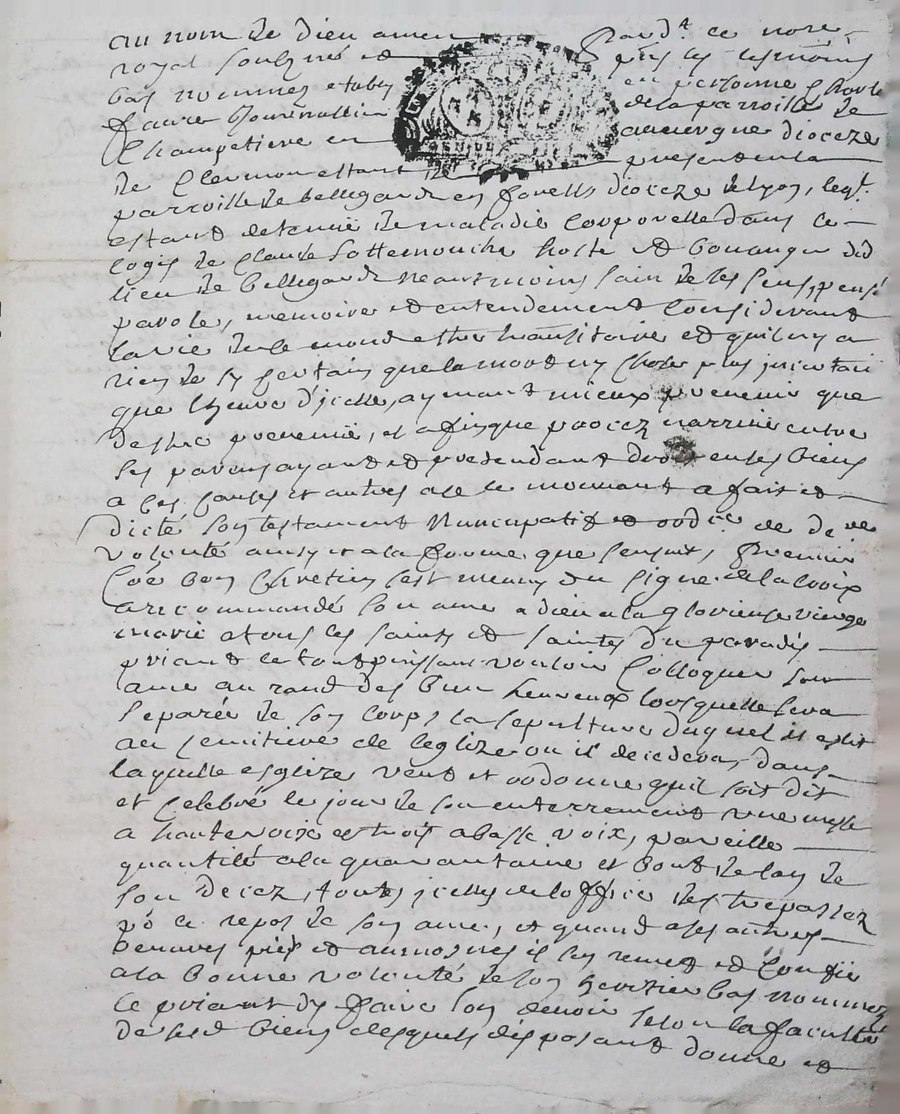 au nom de dieu amen Pard.t ce no.re
royal soubzné et p.ns les tesmoins
bas nommes estably en personne
faure Journallier de la parroisse de
Champetiere en auuergne dioceze
de Clermon estant de present en la
parroisse de bellegarde en forests dioceze de lyon, leq.t
estant detenu de maladie Corporelle dans le
logis de Claude hoste et boulanger dud
lieu de bellegarde neantmoins sain de ses sens, pensé
parole, memoire et entendement Considerant
la vie de ce monde estre transitoire et quil ny a
rien de sy certain que la mort ny chose plus incertain
que lheure d'icelle, aymant mieux preuenir que
destre preuenu, et afin que procez narriue entre
ses parens ayant et pretendant droit en ses biens
a ces causes et autres a ce le mouuant a fait et
dicté son testament Nuncupatif et ord.re de der.re
volonté ainsy et a la forme que sensuit, Premier
Coe bon Chretien sest muny du signe de la croix
a recommandé son ame a dieu a la glorieuse vierge
marie a tous les saints et saintes du paradis
priant le tout puissant vouloir Colloquer son
ame au rand des bien heureux lorsquelle sera
separée de son corps la sepulture duquel il eslit
au semitiere de leglize ou il decedera, dans
laquelle esglize veut et ordonne quil soit dit
et celebré le jour de son enterrement une messe
a haute voix et trois a basse voix, pareille
quantité a la quarantaine et bout de lan de
son decez, toutes icelles de loffice des trepassez
po.r le repos de son ame, et quand a ses autres
oeuures pies et aumosnes il les remet et confie
a la bonne volonté de son heritier bas nommez
le priant dy faire son deuoir selon la faculté
de sesd biens desquels disposant donne et